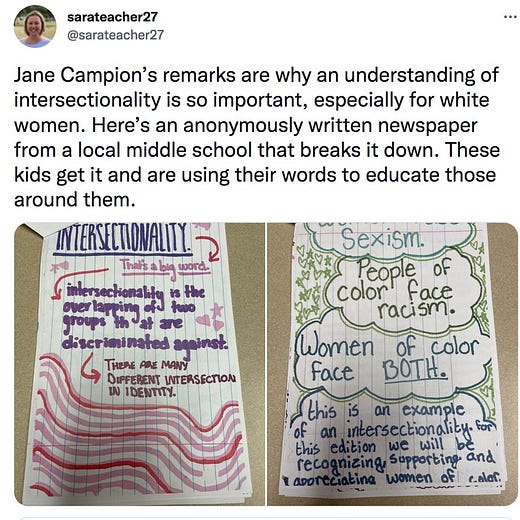 sarateacher27
@sarateacher27
Jane Campion’s remarks are why an understanding of
intersectionality is so important, especially for white
women. Here’s an anonymously written newspaper
from a local middle school that breaks it down. These
kids get it and are using their words to educate those
around them.
INTERSECTIONALITY.
That's a big word.
intersectionality is the
overlapping of two
groups th at are
discriminated against.
THERE ARE MANY
DIFFERENT INTERSECTION
IN IDENTITY.
Sexism.
People of
color face
racism.
Women of color
face BOTH.
this is an example
of an intersectionality. for
this edition we will be
recognizing, supporting and
appreciating women of color.